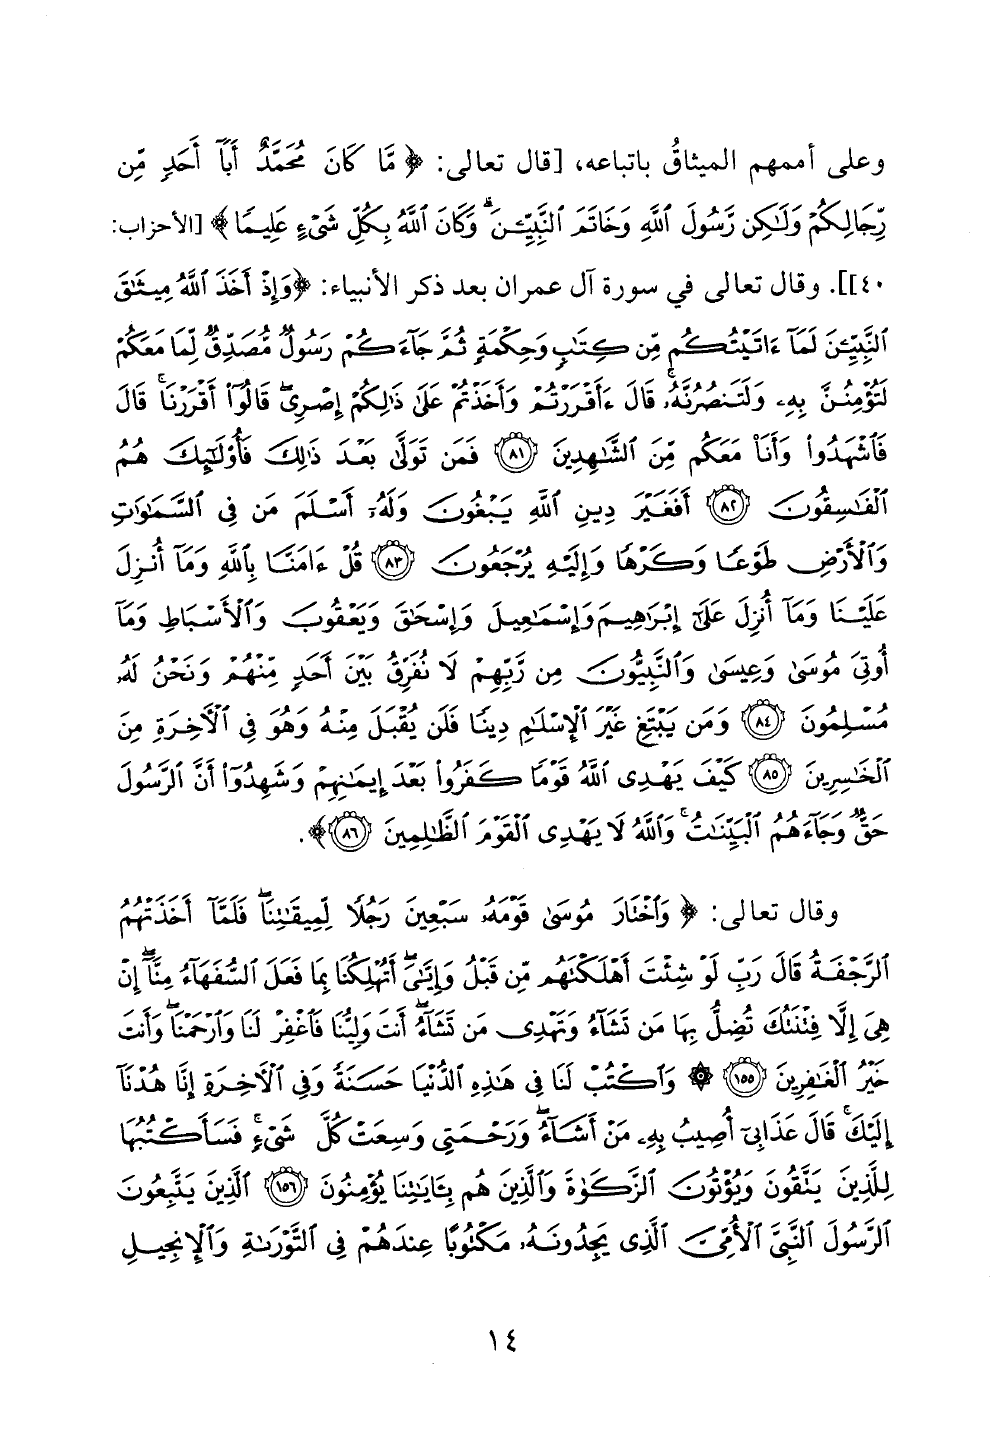 وعلى أممهم الميثاقُ باتباعه، [قال تعالى: ﴿ مَّا كَانَ مُحَمَّدٌ أَبَآ أَحَدٍ مِّن
رِّجَالِكُمْ وَلَٰكِن رَّسُولَ ٱللَّهِ وَخَاتَمَ ٱلنَّبِيِّـۧنَ ۗ وَكَانَ ٱللَّهُ بِكُلِّ شَىْءٍ عَلِيمًا ﴾ [الأحزاب:
٤٠]]. وقال تعالى في سورة آل عمران بعد ذكر الأنبياء: ﴿وَإِذْ أَخَذَ ٱللَّهُ مِيثَٰقَ
ٱلنَّبِيِّـۧنَ لَمَآ ءَاتَيْتُكُم مِّن كِتَٰبٍ وَحِكْمَةٍ ثُمَّ جَآءَكُمْ رَسُولٌ مُّصَدِّقٌ لِّمَا مَعَكُمْ
لَتُؤْمِنُنَّ بِهِۦ وَلَتَنصُرُنَّهُۥ ۚ قَالَ ءَأَقْرَرْتُمْ وَأَخَذْتُمْ عَلَىٰ ذَٰلِكُمْ إِصْرِى ۖ قَالُوٓا۟ أَقْرَرْنَا ۚ قَالَ
فَٱشْهَدُوا۟ وَأَنَا۠ مَعَكُم مِّنَ ٱلشَّٰهِدِينَ (٨١) فَمَن تَوَلَّىٰ بَعْدَ ذَٰلِكَ فَأُو۟لَٰٓئِكَ هُمُ
ٱلْفَٰسِقُونَ (٨٢) أَفَغَيْرَ دِينِ ٱللَّهِ يَبْغُونَ وَلَهُۥٓ أَسْلَمَ مَن فِى ٱلسَّمَٰوَٰتِ
وَٱلْأَرْضِ طَوْعًا وَكَرْهًا وَإِلَيْهِ يُرْجَعُونَ (٨٣) قُلْ ءَامَنَّا بِٱللَّهِ وَمَآ أُنزِلَ
عَلَيْنَا وَمَآ أُنزِلَ عَلَىٰٓ إِبْرَٰهِيمَ وَإِسْمَٰعِيلَ وَإِسْحَٰقَ وَيَعْقُوبَ وَٱلْأَسْبَاطِ وَمَآ
أُوتِىَ مُوسَىٰ وَعِيسَىٰ وَٱلنَّبِيُّونَ مِن رَّبِّهِمْ لَا نُفَرِّقُ بَيْنَ أَحَدٍ مِّنْهُمْ وَنَحْنُ لَهُۥ
مُسْلِمُونَ (٨٤) وَمَن يَبْتَغِ غَيْرَ ٱلْإِسْلَٰمِ دِينًا فَلَن يُقْبَلَ مِنْهُ وَهُوَ فِى ٱلْأَخِرَةِ مِنَ
ٱلْخَٰسِرِينَ (٨٥) كَيْفَ يَهْدِى ٱللَّهُ قَوْمًا كَفَرُوا۟ بَعْدَ إِيمَٰنِهِمْ وَشَهِدُوٓا۟ أَنَّ ٱلرَّسُولَ
حَقٌّ وَجَآءَهُمُ ٱلْبَيِّنَٰتُ ۚ وَٱللَّهُ لَا يَهْدِى ٱلْقَوْمَ ٱلظَّٰلِمِينَ (٨٦)﴾.
وقال تعالى: ﴿ وَٱخْتَارَ مُوسَىٰ قَوْمَهُۥ سَبْعِينَ رَجُلًا لِّمِيقَٰتِنَا ۖ فَلَمَّآ أَخَذَتْهُمُ
ٱلرَّجْفَةُ قَالَ رَبِّ لَوْ شِئْتَ أَهْلَكْتَهُم مِّن قَبْلُ وَإِيَّٰىَ ۖ أَتُهْلِكُنَا بِمَا فَعَلَ ٱلسُّفَهَآءُ مِنَّآ ۖ إِنْ
هِىَ إِلَّا فِتْنَتُكَ تُضِلُّ بِهَا مَن تَشَآءُ وَتَهْدِى مَن تَشَآءُ ۖ أَنتَ وَلِيُّنَا فَٱغْفِرْ لَنَا وَٱرْحَمْنَا ۖ وَأَنتَ
خَيْرُ ٱلْغَٰفِرِينَ (١٥٥) ۞ وَٱكْتُبْ لَنَا فِى هَٰذِهِ ٱلدُّنْيَا حَسَنَةً وَفِى ٱلْأَخِرَةِ إِنَّا هُدْنَآ
إِلَيْكَ ۚ قَالَ عَذَابِىٓ أُصِيبُ بِهِۦ مَنْ أَشَآءُ ۖ وَرَحْمَتِى وَسِعَتْ كُلَّ شَىْءٍ ۚ فَسَأَكْتُبُهَا
لِلَّذِينَ يَتَّقُونَ وَيُؤْتُونَ ٱلزَّكَوٰةَ وَٱلَّذِينَ هُم بِـَٔايَٰتِنَا يُؤْمِنُونَ (١٥٦) ٱلَّذِينَ يَتَّبِعُونَ
ٱلرَّسُولَ ٱلنَّبِىَّ ٱلْأُمِّىَّ ٱلَّذِى يَجِدُونَهُۥ مَكْتُوبًا عِندَهُمْ فِى ٱلتَّوْرَىٰةِ وَٱلْإِنجِيلِ
١٤